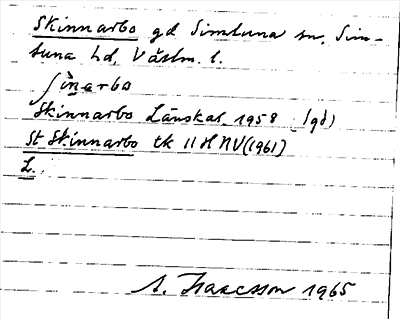 Skinnarbo gd Simtuna sn, Sim-
tuna hd, Västm. l.
ʃìnarbo
Skinnarbo Länskat 1958 (gd)
St Skinnarbo tk 11 H NV (1961)
L.
A. Isaacsson 1965